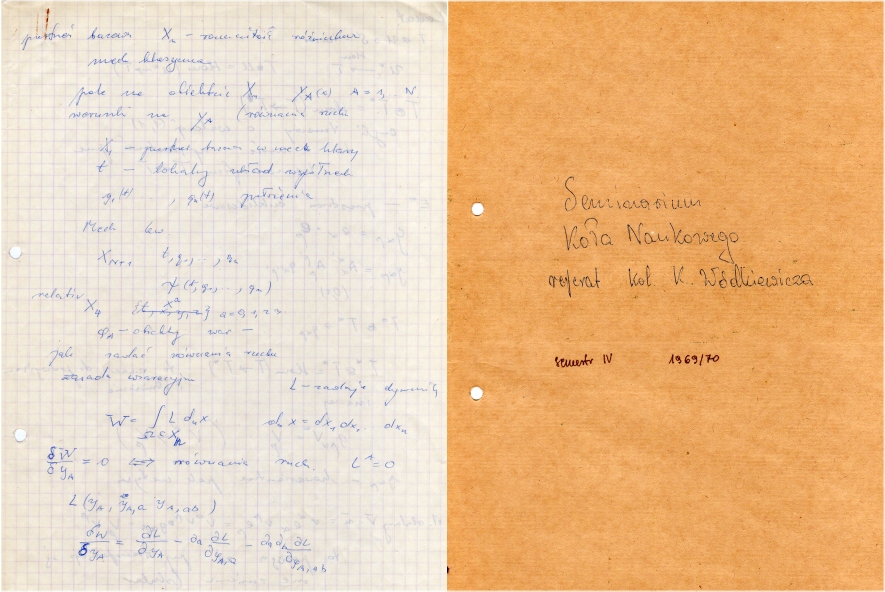 przestrzeń bazowa Xₙ – rozmaitość różniczkow.
mech klasyczna
pole na obiekcie Xₙ y_A(x) A = 1, N
warunki na y_A (równania ruchu
X₁ – przestrzeń bazowa w mech klasy
t – lokalny układ współrzędn
q₁(t) , qₙ(t) położenia
Mech kw
X_{N+1} t, q₁, – , qₙ
ψ(t, q₁, – , qₙ)
relatiw X₄ xᵃ a=0,1,2,3
φ_A – obiekty
jak zadać równania ruchu
zasada wariacyjna L – zadaje dynamikę
W = ∫ L dₙx dₙx = dx₁ dx₂ dxₙ
Ω⊂Xₙ
δW/δy_A = 0 ⟺ równania ruch. Lᴬ = 0
L(y_A, y_A,a y_A,ab)
δW/δy_A = ∂L/∂y_A – ∂a ∂L/∂y_A,a – ∂a∂b ∂L/∂y_A,ab
Seminarium
Koła Naukowego
referat kol. K. Wódkiewicza
semestr IV 1969/70